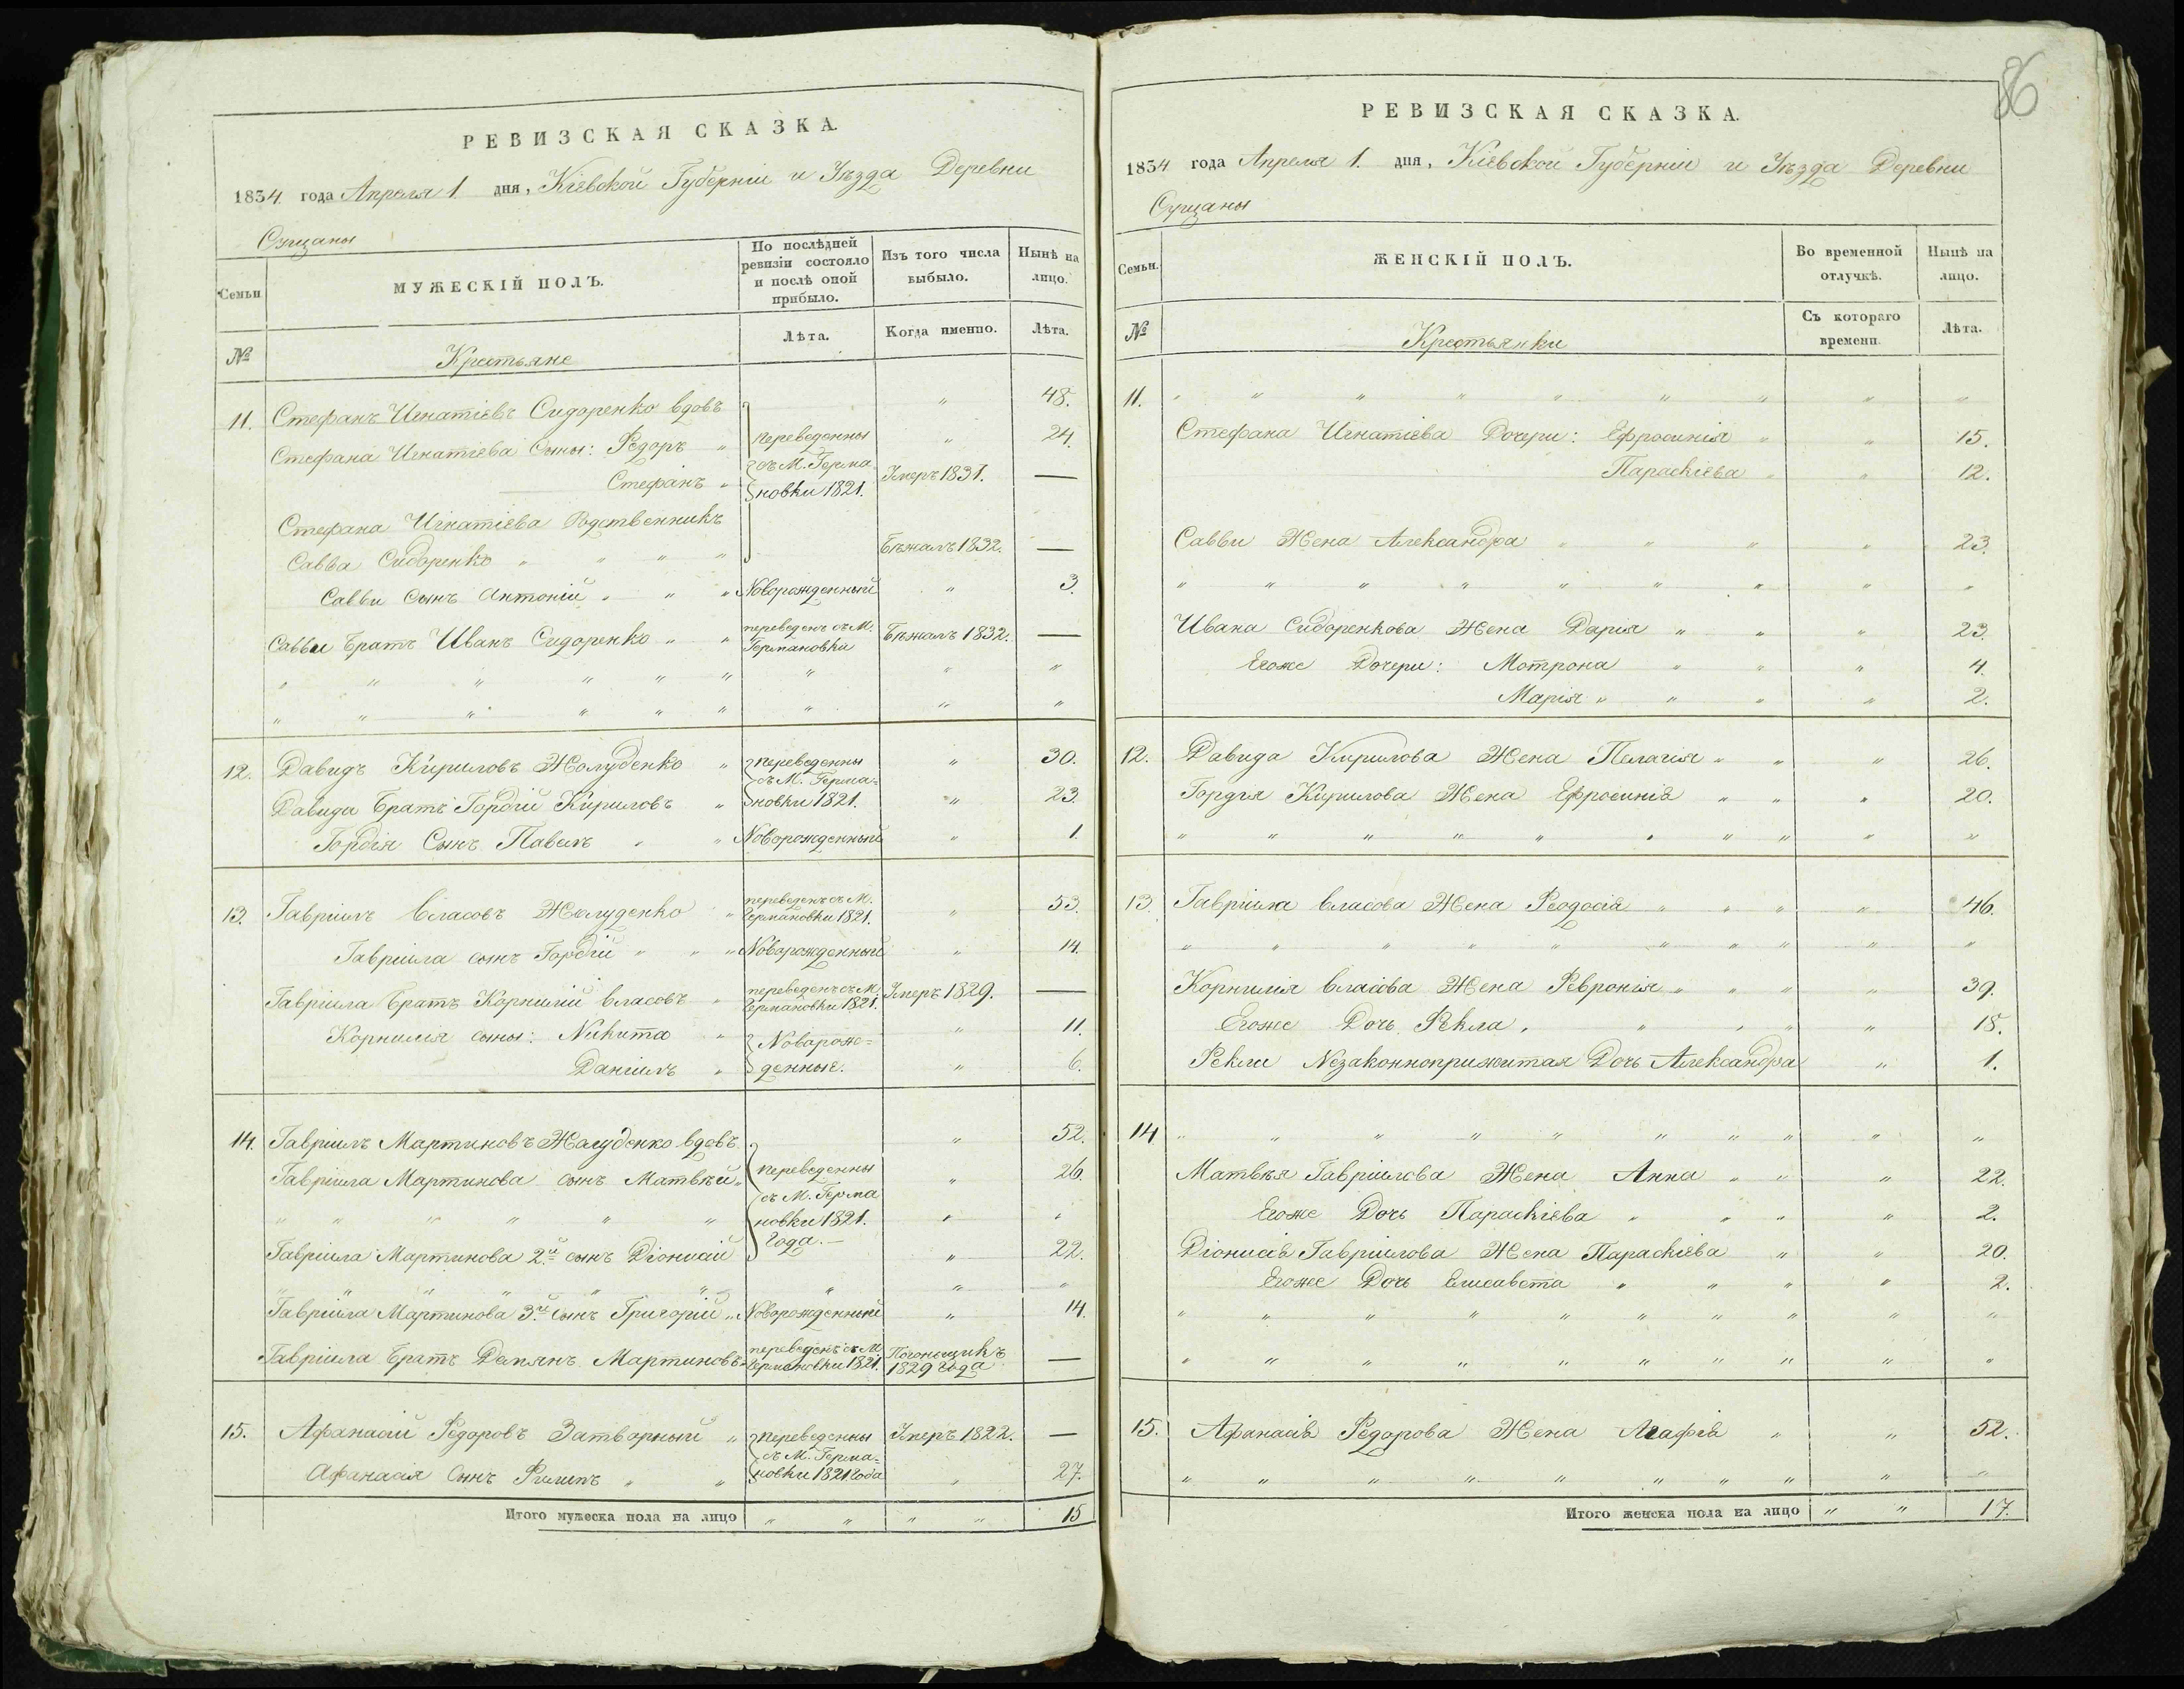 86
РЕВИЗСКАЯ СКАЗКА.
1834 года Апреля 1 дня, Кіевской Губерніи и Уѣзда Деревни
Сущаны
Семьи
МУЖЕСКІЙ ПОЛЪ.
По послѣдней ревизіи состояло и послѣ оной прибыло.
Изъ того числа выбыло.
Нынѣ на лицо.
№
Крестьяне
Лѣта.
Когда именно.
Лѣта.
11. Стефанъ Игнатіевъ Сидоренко вдовъ " 48.
Стефана Игнатіева Сыны: Ѳедоръ " переведенны " 24.
Стефанъ " съ М. Герма Умеръ 1831. —
новки 1821.
Стефана Игнатіева Родственникъ
Савва Сидоренко " " " Бѣжалъ 1832. —
Савви Сынъ Антоній " " " Новорожденный " 3.
Савви Братъ Иванъ Сидоренко " " переведенъ съ М. Германовки Бѣжалъ 1832. —
" " " " " " " " "
" " " " " " " " "
12. Давидъ Кириловъ Жолуденко " переведенны " 30.
съ М. Герма=
Давида Братъ Гордій Кириловъ " новки 1821. " 23.
Гордія Сынъ Павелъ " " Новорожденный " 1.
13. Гавріилъ Власовъ Жолуденко " переведенъ съ М. Германовки 1821. " 53.
Гавріила сынъ Гордій " " " Новорожденный " 14.
Гавріила Братъ Корнилій Власовъ " переведенъ съ М. Германовки 1821. Умеръ 1829. —
Корнилія сыны: Никита " Новорож= " 11.
Даніилъ " денные. " 6.
14. Гавріилъ Мартиновъ Жолуденко вдовъ " 52.
Гавріила Мартинова сынъ Матвѣй " переведенны " 26.
съ М. Герма
" " " " " " новки 1821. " "
Года. —
Гавріила Мартинова 2й сынъ Діонисій " 22.
" " " " " " " " "
Гавріила Мартинова 3й сынъ Григорій " Новорожденный " 14.
Гавріила Братъ Дамянъ Мартиновъ переведенъ съ М Германовки 1821. 1829 года —
15. Афанасій Ѳедоровъ Затворный " переведенны Умеръ 1822. —
съ М. Герма=
Афанасія Сынъ Филипъ " " новки 1821 года " 27.
Итого мужеска пола на лицо " " " " 15
РЕВИЗСКАЯ СКАЗКА.
1834 года Апреля 1. дня, Кіевской Губерніи и Уѣзда Деревни
Сущаны
Семьи.
ЖЕНСКІЙ ПОЛЪ.
Во временной отлучкѣ.
Нынѣ на лицо.
№
Крестьянки
Съ котораго времени.
Лѣта.
11. " " " " " " " " "
Стефана Игнатіева Дочери: Ефросинія " " 15.
Параскіева " " 12.
Савви Жена Александра " " " " 23.
" " " " " " " " "
Ивана Сидоренкова Жена Дарія " " " 23.
Егоже Дочери: Мотрона " " " 4.
Марія " " " " 2.
12. Давида Кирилова Жена Пелагія " " " 26.
Гордія Кирилова Жена Ефросинія " " " 20.
" " " " " " " " " "
13. Гавріила Власова Жена Ѳеодосія " " " " 46.
" " " " " " " " " "
Корнилія Власова Жена Ѳевронія " " " " 39.
Егоже Дочь Ѳекла " " " " " 18.
Ѳекли Незаконноприжитая Дочь Александра " 1.
14 " " " " " " " " " "
Матвѣя Гавріилова Жена Анна " " " 22.
Егоже Дочь Параскіева " " " " 2.
Діонисія Гавріилова Жена Параскіева " " 20.
Егоже Дочь Елисавета " " " " 2.
" " " " " " " " " "
" " " " " " " " " "
15. Афанасія Ѳедорова Жена Агафія " " 52.
" " " " " " " " " "
Итого женска пола на лицо " " 17.